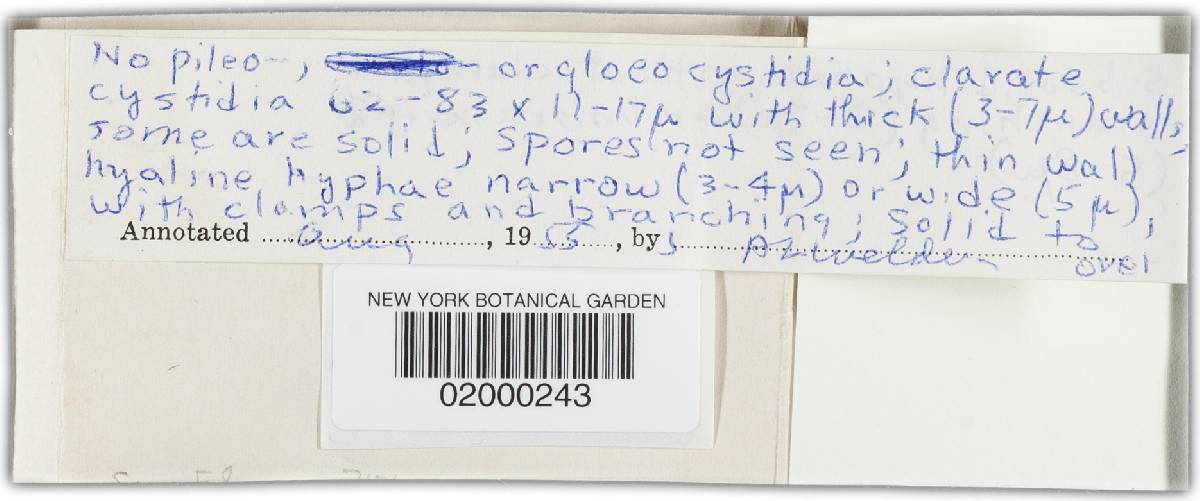 No pileo-, or gloeocystidia; clavate
cystidia 62-83 x 11-17µ with thick (3-7µ) walls,
some are solid; spores not seen; thin wall
hyaline hyphae narrow (3-4µ) or wide (5µ),
with clamps and branching; solid to
Annotated Aug, 1955, by
over
NEW YORK BOTANICAL GARDEN
02000243